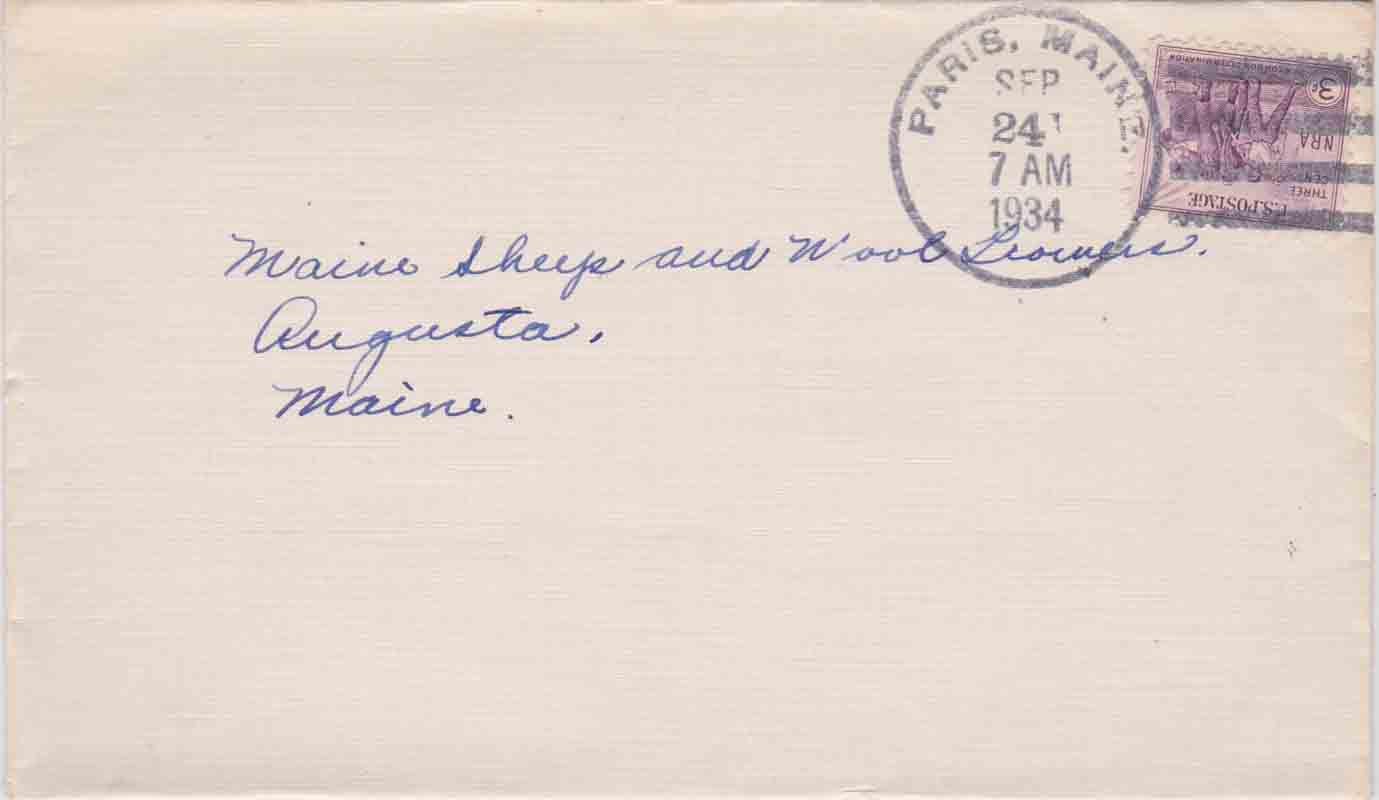 PARIS, MAINE.
SEP
24
7 AM
1934
U.S. POSTAGE
THREE
CENTS
NRA
3c
Maine Sheep and Wool Growers.
Augusta,
Maine.